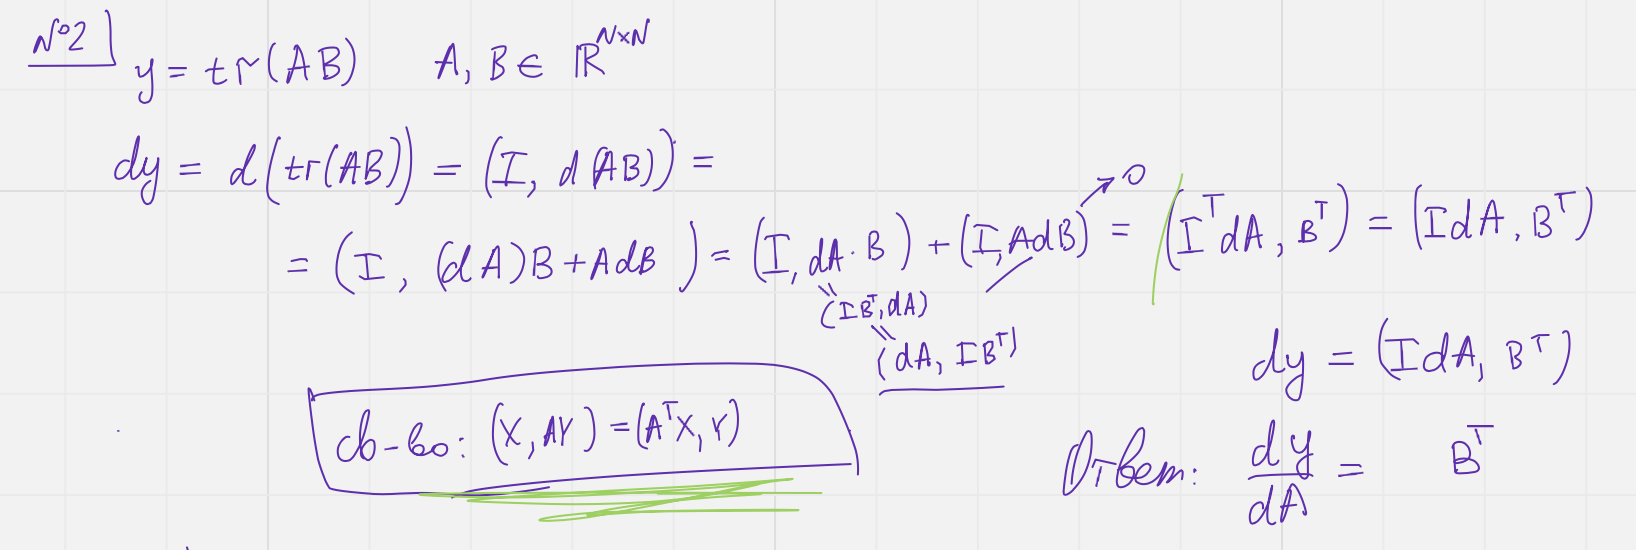 №2
y = tr(AB) A, B ∈ ℝᴺˣᴺ
dy = d(tr(AB)) = (I, d(AB)) =
= (I, (dA)B + AdB) = (I, dA · B) + (I, AdB) → 0 = (IᵀdA, Bᵀ) = (IdA, Bᵀ)
(IBᵀ, dA)
(dA, IBᵀ)
dy = (IdA, Bᵀ)
св-во: (X, AY) = (AᵀX, Y)
Ответ: dy/dA = Bᵀ